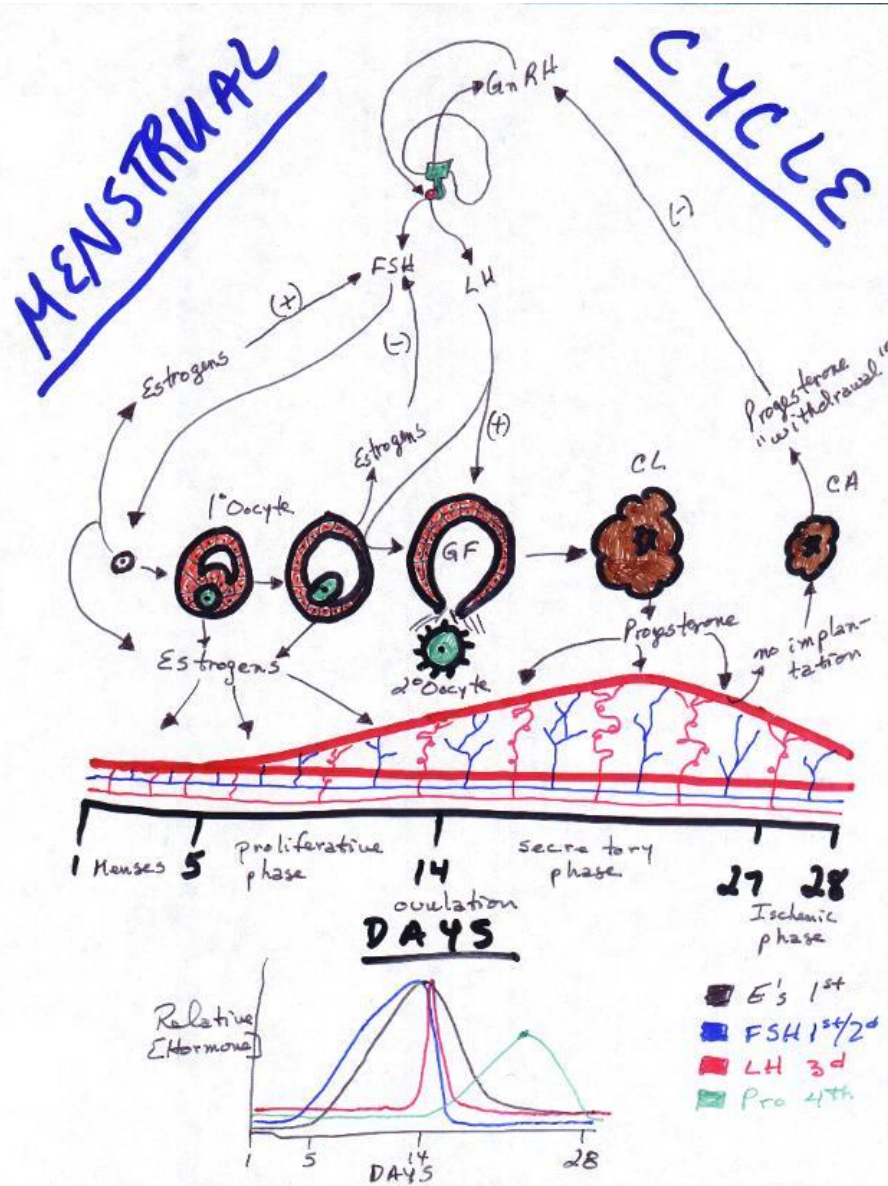 MENSTRUAL
CYCLE
GnRH
FSH
LH
(+)
(-)
(-)
Estrogens
Estrogens
(+)
Progesterone
"withdrawal"
1° Oocyte
GF
CL
CA
2° Oocyte
Estrogens
Progsterone
no implan-
tation
1 Menses 5 proliferative phase 14 secretory phase 27 28
ovulation
Ischemic
phase
DAYS
Relative
[Hormone]
1 5 14 28
DAYS
E's 1st
FSH 1st/2d
LH 3d
Pro 4th